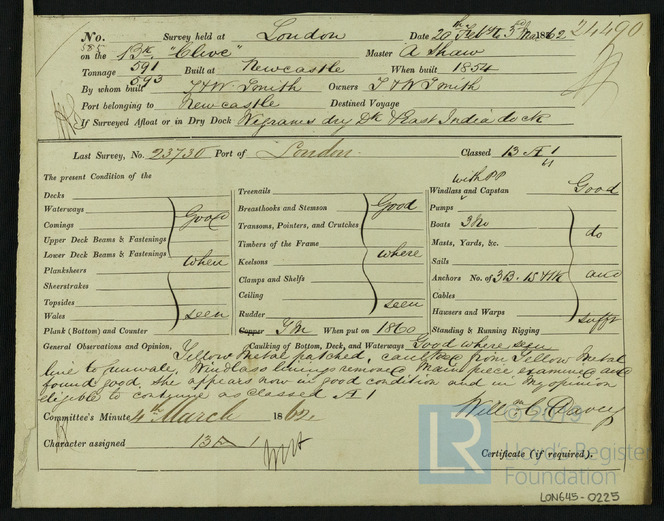 No. 585 Survey held at London Date 20th Feb to 3rd Mar 1862 24490
on the Bk "Clive" Master A Shaw
Tonnage 591 593 Built at Newcastle When built 1854
By whom built T & W Smith Owners T & W Smith
Port belonging to Newcastle Destined Voyage
If Surveyed Afloat or in Dry Dock Wigrams dry Dk East India dock
Last Survey, No. 23730 Port of London. Classed 13 A 1
The present Condition of the
Decks
Waterways
Comings
Upper Deck Beams & Fastenings
Lower Deck Beams & Fastenings
Planksheers
Sheerstrakes
Topsides
Wales
Plank (Bottom) and Counter
Good
when
seen
Treenails
Breasthooks and Stemson
Transoms, Pointers, and Crutches
Timbers of the Frame
Keelsons
Clamps and Shelfs
Ceiling
Rudder
Copper Y M When put on 1860
Good
where
seen
with PP
Windlass and Capstan Good
Pumps
Boats 3 No
Masts, Yards, &c.
Sails
Anchors No. of 3B. 1S 1K
Cables
Hawsers and Warps
Standing & Running Rigging
do
and
sufft
General Observations and Opinion, Caulking of Bottom, Deck, and Waterways Good where seen
Yellow Metal patched, caulked from Yellow Metal
line to gunwale, Windlass linings removed, Main piece examined and
found good. She appears now in good condition and in my opinion
eligible to continue as classed A 1
Committee's Minute 4th March 1862 Willm C Davey
Character assigned 13 A 1
Certificate (if required).
© 2019
LR Lloyd's Register
Foundation
LON645-0225